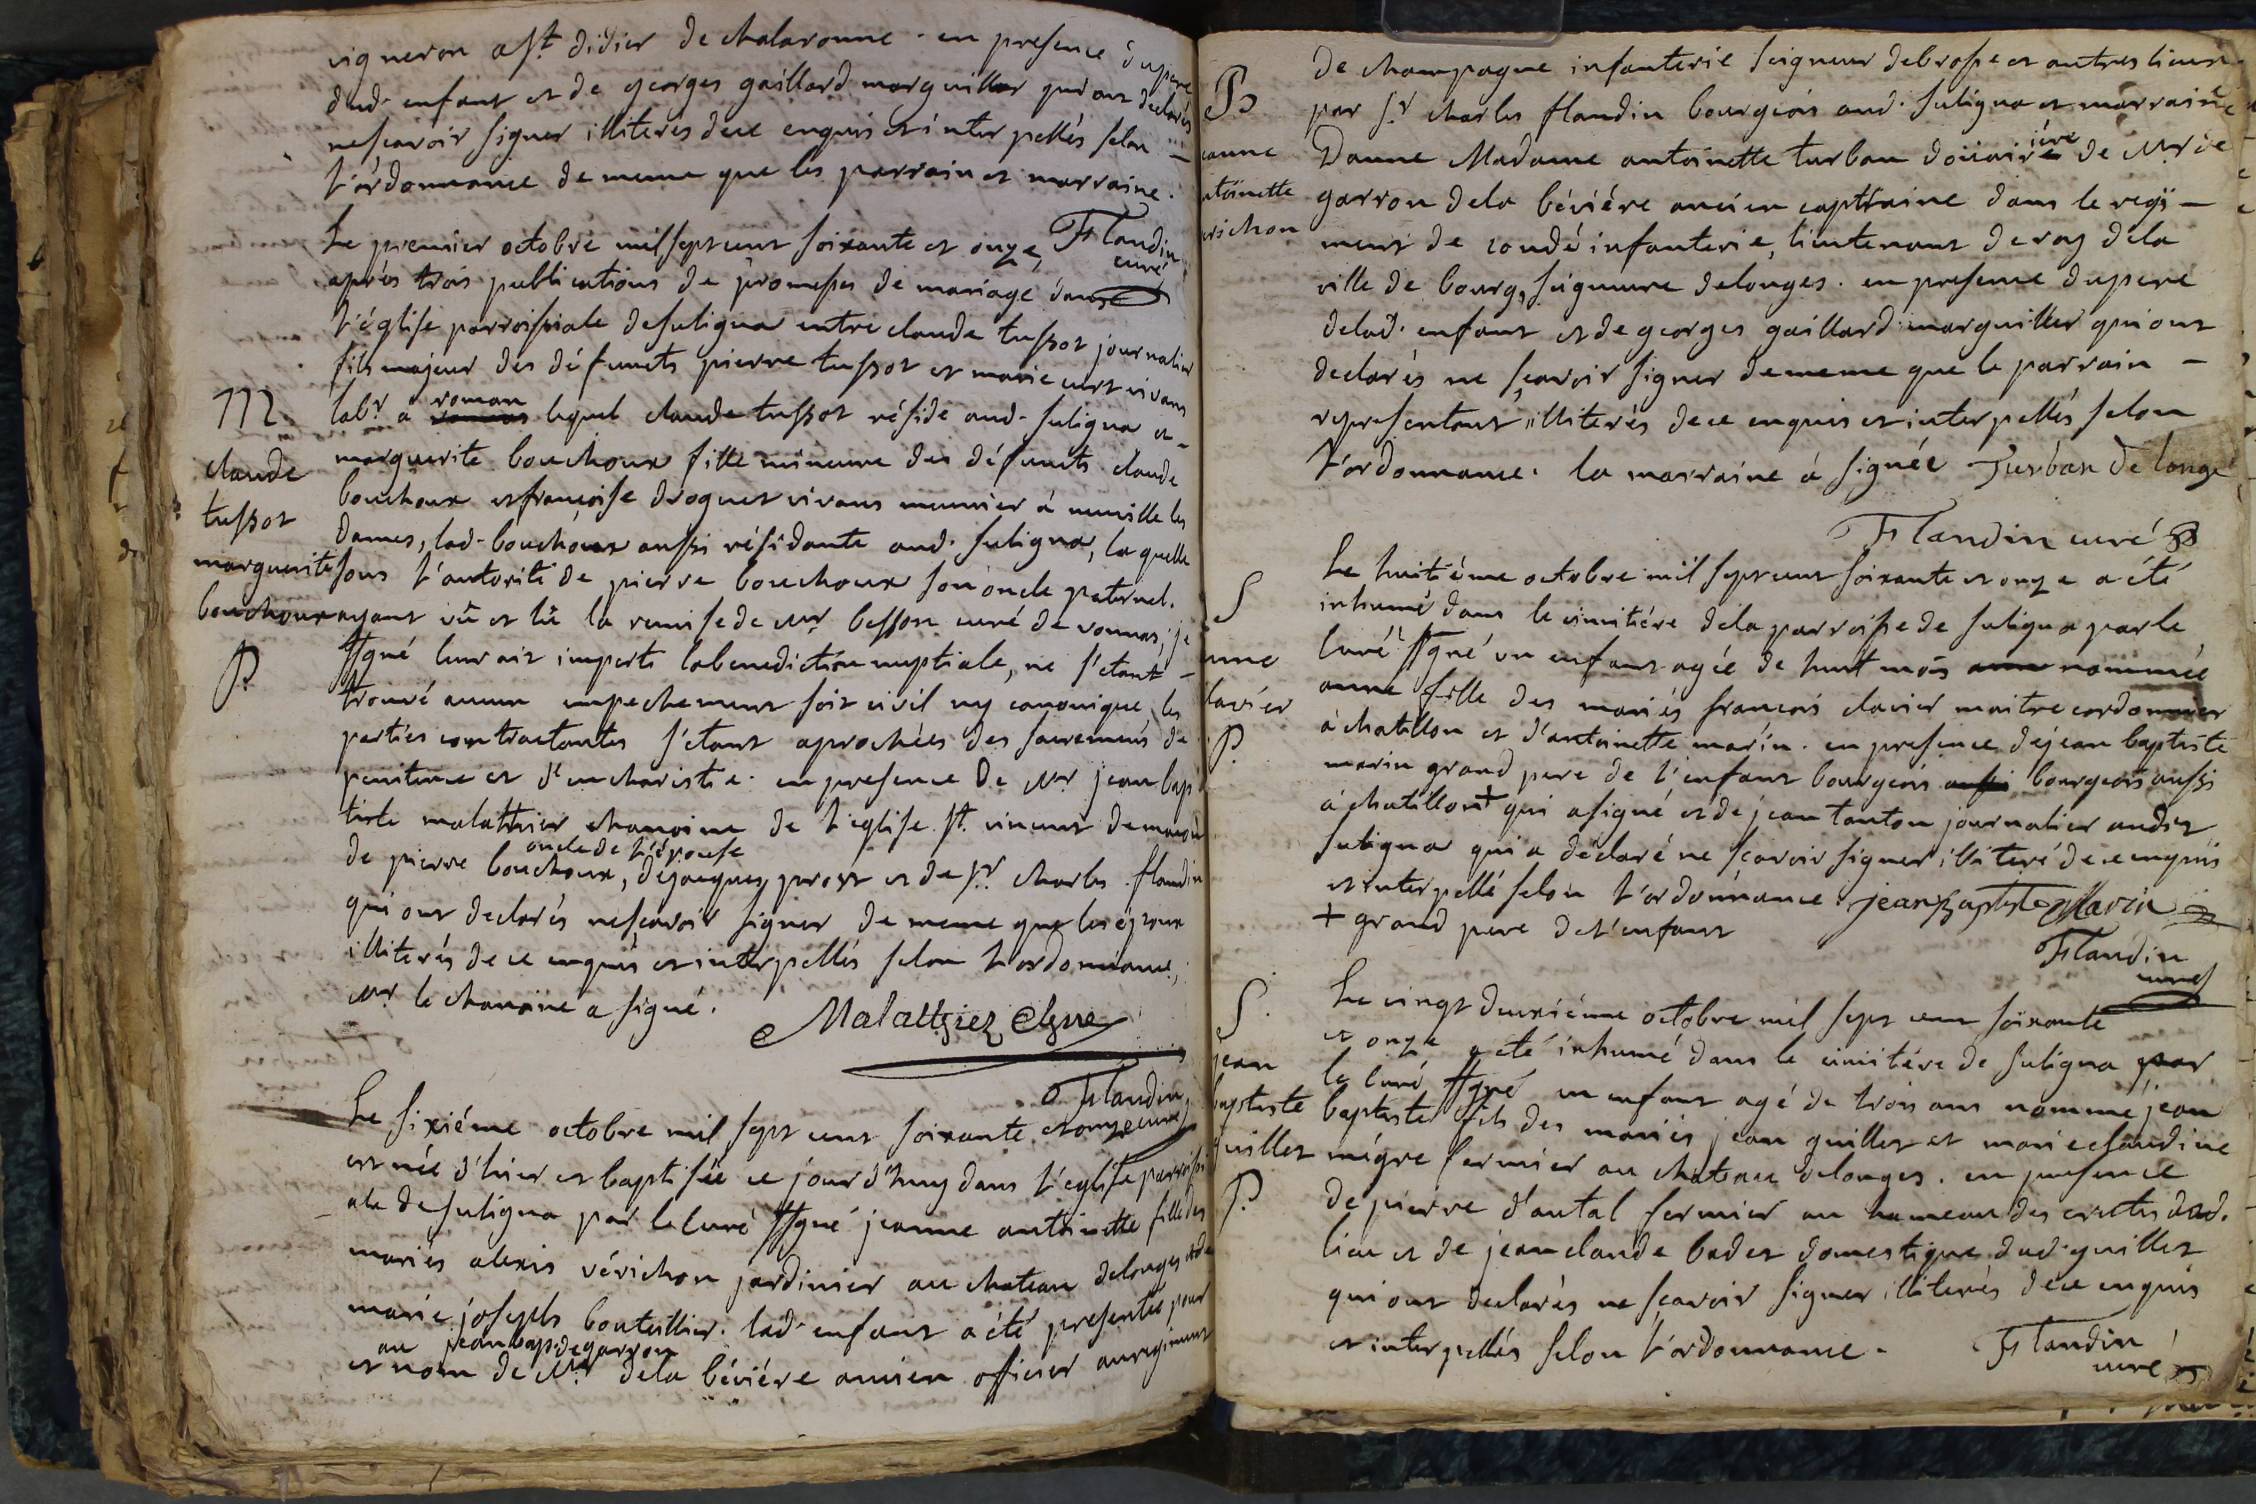 vigneron a st didier de chalaronne. en presence du pere
dud. enfant et de georges gaillard marguiller qui ont declarés
ne scavoir signer illiterés de ce enquis et interpellés selon —
l'ordonnance de meme que les parrain et marraine.
Flandin
curé
Le premier octobre mil sept cent soixante et onze,
après trois publications de promesses de mariage dans
l'église parroissiale de suligna entre claude tussot journalier
fils majeur des défunts pierre tussot et marie curt vivans
labr à roman lequel claude tussot réside aud. suligna et -
marguerite bouchoux fille mineure des défunts claude
bouchoux et françoise droguet vivans meunier à neuville les
Dames, lad. bouchoux aussi résidante aud. suligna, laquelle
sous l'autorité de pierre bouchoux son oncle paternel.
ayant vû et lû la remise de Mr besson curé de vonnas, je
ssgné leur ait imparti la benediction nuptiale, ne s'étant —
trouvé aucun empechement soit civil ny canonique, les
parties contractantes s'étant aprochées des sacremens de
penitence et d'eucharistie. en presence de Mr jean bap
tiste malattrier chanoine de l'eglise st. vincent de macon
oncle de l'épouse
de pierre bouchoux, de jacques prost et de sr. charles flandin
qui ont declarés ne scavoir signer de meme que les époux
illiterés de ce enquis et interpellés selon l'ordonnance,
Mr le chanoine a signé.
Malattriez Chne
Flandin
curé
M
claude
tussot
marguerite
bouchoux
P.
Le sixiéme octobre mil sept cent soixante et onze
est née d'hier et baptisée ce jourd'huy dans l'eglise parroissi
ale de suligna par le curé ssgné jeanne antoinette fille des
mariés alexis vérichon jardinier au chateau de longes et de
marie joseph bouteillier. lad. enfant a été presentée pour
au jean bap. de garron
et nom de Mr de la béviére ancien officier au regiment
B
jeanne
antoinette
verichon
de champagne infanterie seigneur de brosse et autres lieux
par sr charles flandin bourgeois aud. suligna et marraine
Danne Madame antoinette turban doüairière de Mr de
garron de la béviére ancien capitaine dans le regi —
ment de condé infanterie, lieutenant de roy de la
ville de bourg, seigneure de longes. en presence du pere
de lad. enfant et de georges gaillard marguiller qui ont
declarés ne scavoir signer de meme que le parrain —
representant, illiterés de ce enquis et interpellés selon
l'ordonnance. la marraine á signée Turban de longe
Flandin curé
S
anne
clavier
P.
Le huitiéme octobre mil sept cent soixante et onze a été
inhumé dans le cimitiére de la parroisse de suligna par le
curé ssgné un enfant agée de huit mois nommée
anne fille des mariés françois clavier maitre cordonnier
à chatillon et d'antoinette marin. en presence de jean baptiste
marin grand pere de l'enfant bourgeois aussi bourgeois aussi
à chatillon + qui a signé et de jean tonton journalier audit
suligna qui a declaré ne scavoir signer illiteré de ce enquis
et interpellé selon l'ordonnance. jean Baptiste Marin
+ grand pere de l'enfant
Flandin
curé
S.
jean
baptiste
guillet
P.
Le vingt deuxiéme octobre mil sept cent soixante
et onze a été inhumé dans le cimitére de suligna par
le curé ssgné un enfant agé de trois ans nommé jean
baptiste fils des mariés jean guillet et marie claudine
mégre fermier au chateau de longes. en presence
de pierre d'antal fermier au hameau des crettes dud.
lieu et de jean claude badet domestique dud. guillet
qui ont declarés ne scavoir signer illiterés de ce enquis
et interpellés selon l'ordonnance.
Flandin
curé